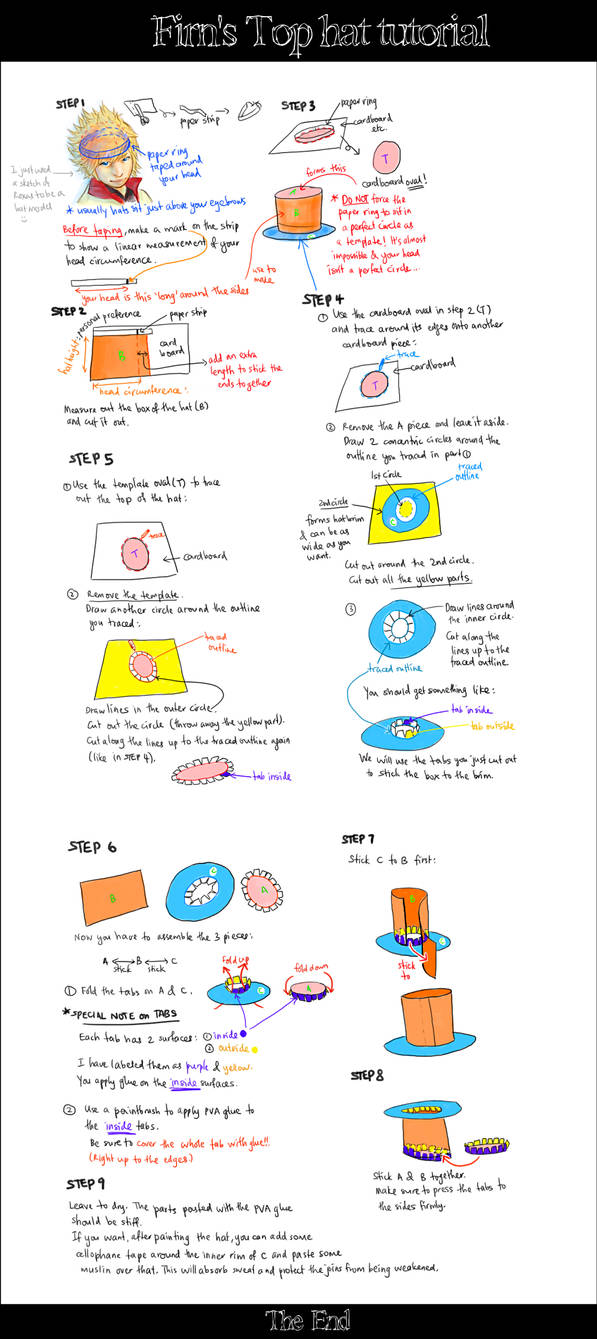 Firn's Top hat tutorial
STEP 1
paper strip
I just used
a sketch of
to be a
hat model
:)
paper ring
taped around
your head
* usually hats sit just above your eyebrows
Before taping, make a mark on the strip
to show a linear measurement of your
head circumference.
your head is this 'long' around the sides
STEP 2
personal preference
paper strip
hat height:
B
card
board
add an extra
length to stick the
ends together
head circumference:
Measure out the box of the hat (B)
and cut it out.
STEP 3
paper ring
cardboard
etc.
T
cardboard oval!
forms this
A
B
C
use to
make
* DO NOT force the
paper ring to sit in
a perfect circle as
a template! It's almost
impossible & your head
isn't a perfect circle...
STEP 4
① Use the cardboard oval in step 2 (T)
and trace around its edges onto another
cardboard piece:
trace
cardboard
T
② Remove the A piece and leave it aside.
Draw 2 concentric circles around the
outline you traced in part ①
1st circle
traced
outline
2nd circle
forms hat brim
& can be as
wide as you
want.
C
Cut out around the 2nd circle.
Cut out all the yellow parts.
③
Draw lines around
the inner circle.
Cut along the
lines up to the
traced outline.
traced outline
You should get something like:
tab inside
tab outside
We will use the tabs you just cut out
to stick the box to the brim.
STEP 5
① Use the template oval (T) to trace
out the top of the hat:
trace
T
cardboard
② Remove the template.
Draw another circle around the outline
you traced:
traced
outline
Draw lines in the outer circle.
Cut out the circle (throw away the yellow part).
Cut along the lines up to the traced outline again
(like in STEP 4).
tab inside
STEP 6
B
C
A
Now you have to assemble the 3 pieces:
A ↔ B ↔ C
stick stick
① Fold the tabs on A & C.
Fold up
C
fold down
A
* SPECIAL NOTE on TABS
Each tab has 2 surfaces: ① inside
② outside
I have labeled them as purple & yellow.
You apply glue on the inside surfaces.
② Use a paintbrush to apply PVA glue to
the inside tabs.
Be sure to cover the whole tab with glue!!
(Right up to the edges.)
STEP 7
Stick C to B first:
B
C
stick
to
STEP 8
Stick A & B together.
Make sure to press the tabs to
the sides firmly.
STEP 9
Leave to dry. The parts pasted with the PVA glue
should be stiff.
If you want, after painting the hat, you can add some
cellophane tape around the inner rim of C and paste some
muslin over that. This will absorb sweat and protect the joins from being weakened.
The End